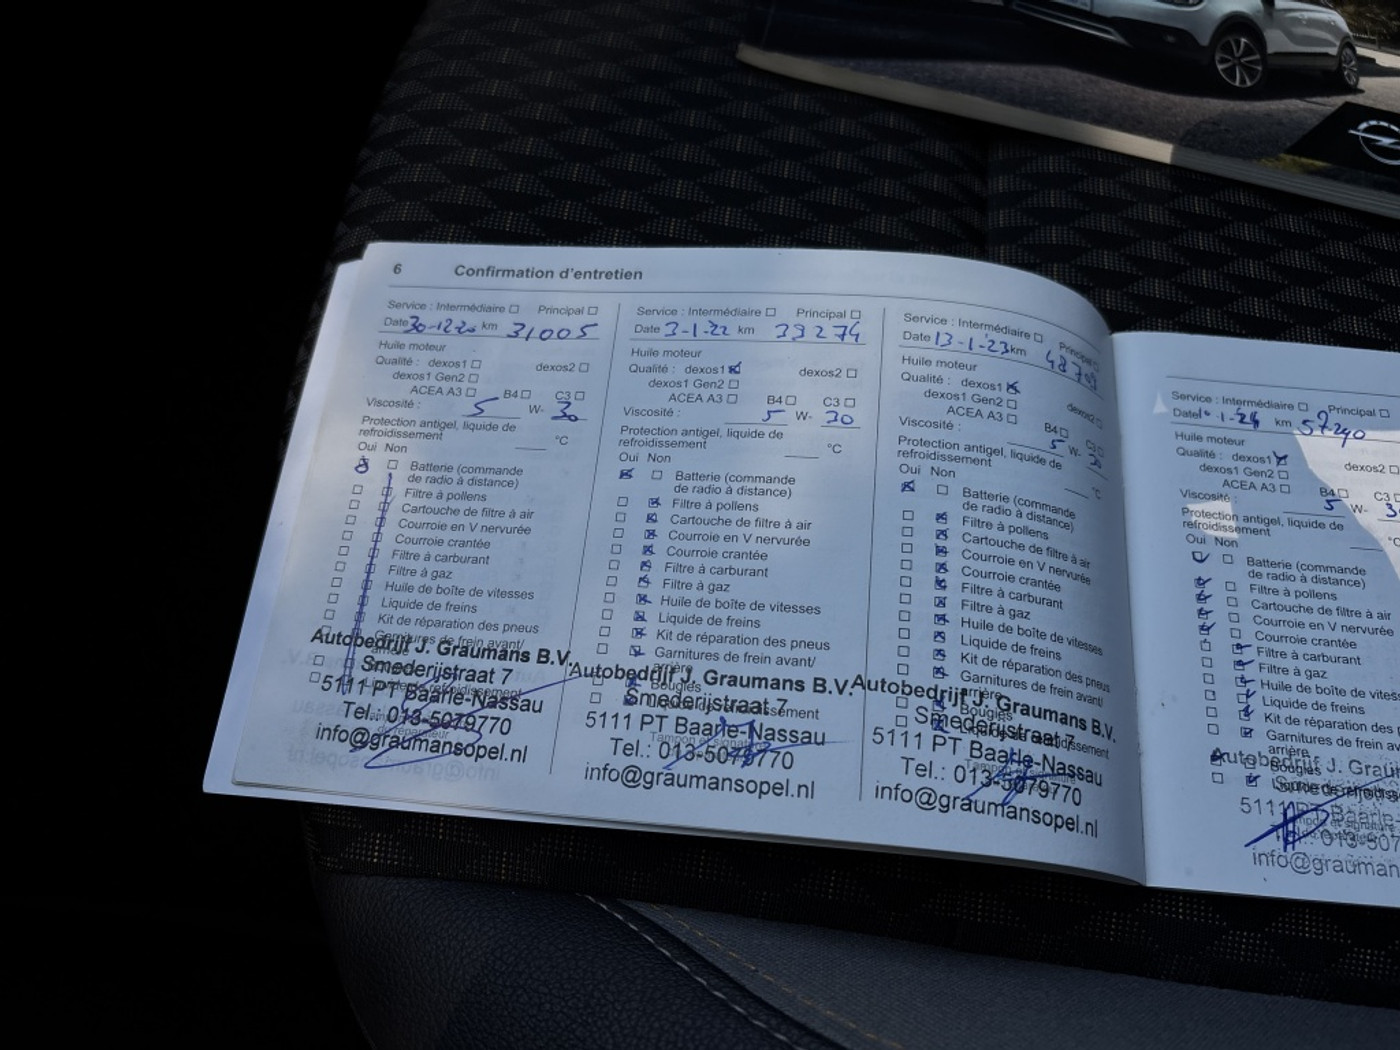 6 Confirmation d'entretien
Service : Intermédiaire Principal
Date 30-12-20 km 31005
Huile moteur
Qualité : dexos1 dexos2
dexos1 Gen2
ACEA A3 B4 C3
Viscosité : 5 W- 30
Protection antigel, liquide de
refroidissement °C
Oui Non
Batterie (commande
de radio à distance)
Filtre à pollens
Cartouche de filtre à air
Courroie en V nervurée
Courroie crantée
Filtre à carburant
Filtre à gaz
Huile de boîte de vitesses
Liquide de freins
Kit de réparation des pneus
Garnitures de frein avant/
Autobedrijf J. Graumans B.V.
Smederijstraat 7
5111 PT Baarle-Nassau
Tel.: 013-5079770
info@graumansopel.nl
Service : Intermédiaire Principal
Date 3-1-22 km 39274
Huile moteur
Qualité : dexos1 dexos2
dexos1 Gen2
ACEA A3 B4 C3
Viscosité : 5 W- 30
Protection antigel, liquide de
refroidissement °C
Oui Non
Batterie (commande
de radio à distance)
Filtre à pollens
Cartouche de filtre à air
Courroie en V nervurée
Courroie crantée
Filtre à carburant
Filtre à gaz
Huile de boîte de vitesses
Liquide de freins
Kit de réparation des pneus
Garnitures de frein avant/
arrière
Bougies
Autobedrijf J. Graumans B.V.
Smederijstraat 7
5111 PT Baarle-Nassau
Tel.: 013-5079770
info@graumansopel.nl
Service : Intermédiaire Principal
Date 13-1-23 km
Huile moteur
Qualité : dexos1 dexos2
dexos1 Gen2
ACEA A3 B4 C3
Viscosité : 5 W- 30
Protection antigel, liquide de
refroidissement °C
Oui Non
Batterie (commande
de radio à distance)
Filtre à pollens
Cartouche de filtre à air
Courroie en V nervurée
Courroie crantée
Filtre à carburant
Filtre à gaz
Huile de boîte de vitesses
Liquide de freins
Kit de réparation des pneus
Garnitures de frein avant/
arrière
Bougies
Autobedrijf J. Graumans B.V.
Smederijstraat 7
5111 PT Baarle-Nassau
Tel.: 013-5079770
info@graumansopel.nl
Service : Intermédiaire Principal
Date km 57240
Huile moteur
Qualité : dexos1 dexos2
dexos1 Gen2
ACEA A3 B4 C3
Viscosité : 5 W-
Protection antigel, liquide de
refroidissement
Oui Non
Batterie (commande
de radio à distance)
Filtre à pollens
Cartouche de filtre à air
Courroie en V nervurée
Courroie crantée
Filtre à carburant
Filtre à gaz
Huile de boîte de vitess
Liquide de freins
Kit de réparation des
Garnitures de frein av
arrière
Bougies
Autobedrijf J. Grau
5111 PT Baarle-
013-507
info@grauman